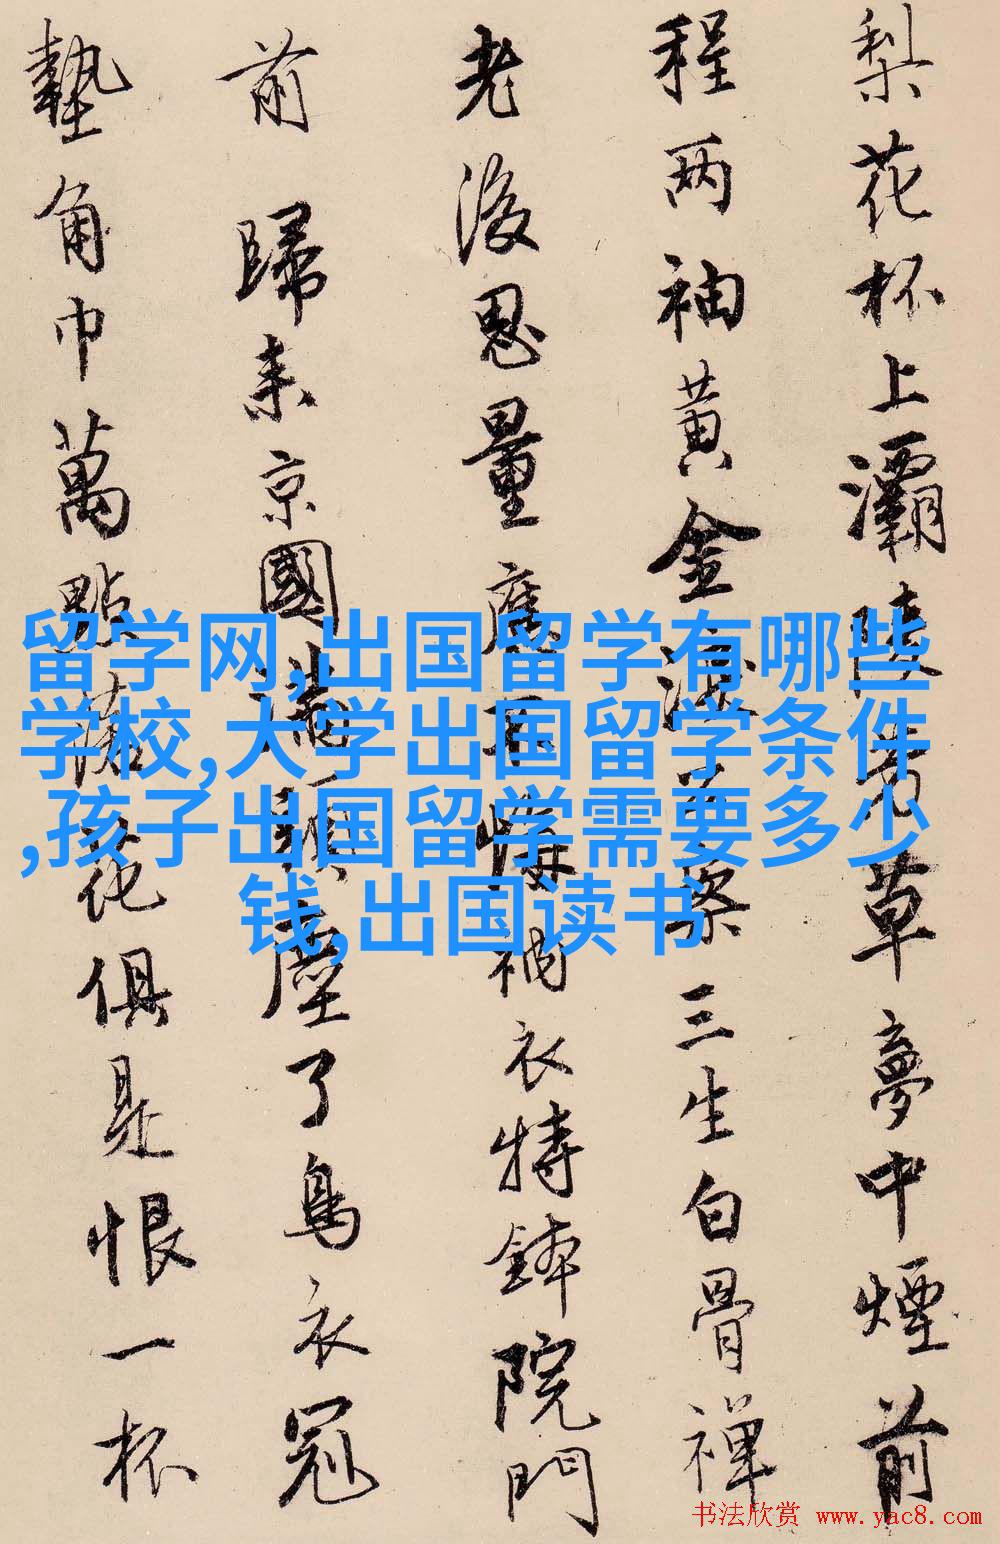 梨花杯上灞陵草夢中煙前
程两袖黄金淚公案三生白骨禪
老後思量應不悔衲衣持鉢院門
前 歸来京國滿頭塵了鳥衣冠
墊角巾萬點落花俱是恨一杯
留学网,出国留学有哪些
学校,大学出国留学条件
,孩子出国留学需要多少
钱,出国读书
书法欣赏 www.yac8.com